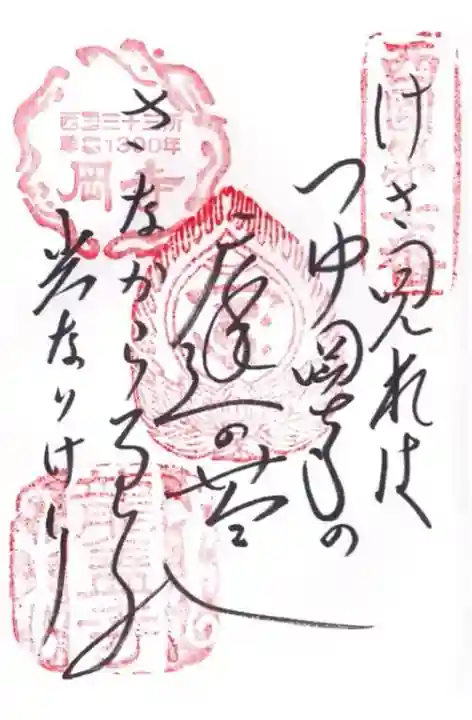 西国第七番
けさ見れは
つゆ岡寺の
庭の苔
さなから
光なりけり
西国三十三所
草創1300年
岡寺